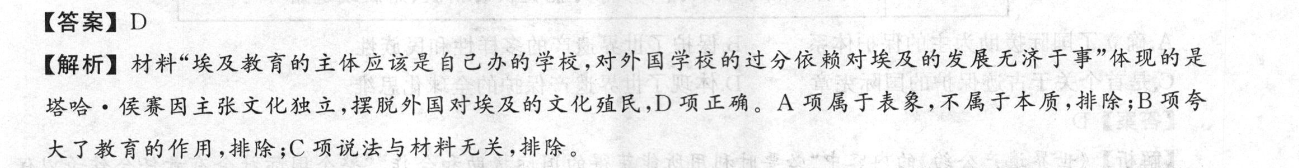 【答案】D
【解析】材料“埃及教育的主体应该是自己办的学校,对外国学校的过分依赖对埃及的发展无济于事”体现的是
塔哈·侯赛因主张文化独立,摆脱外国对埃及的文化殖民,D项正确。A项属于表象,不属于本质,排除;B项夸
大了教育的作用,排除;C项说法与材料无关,排除。